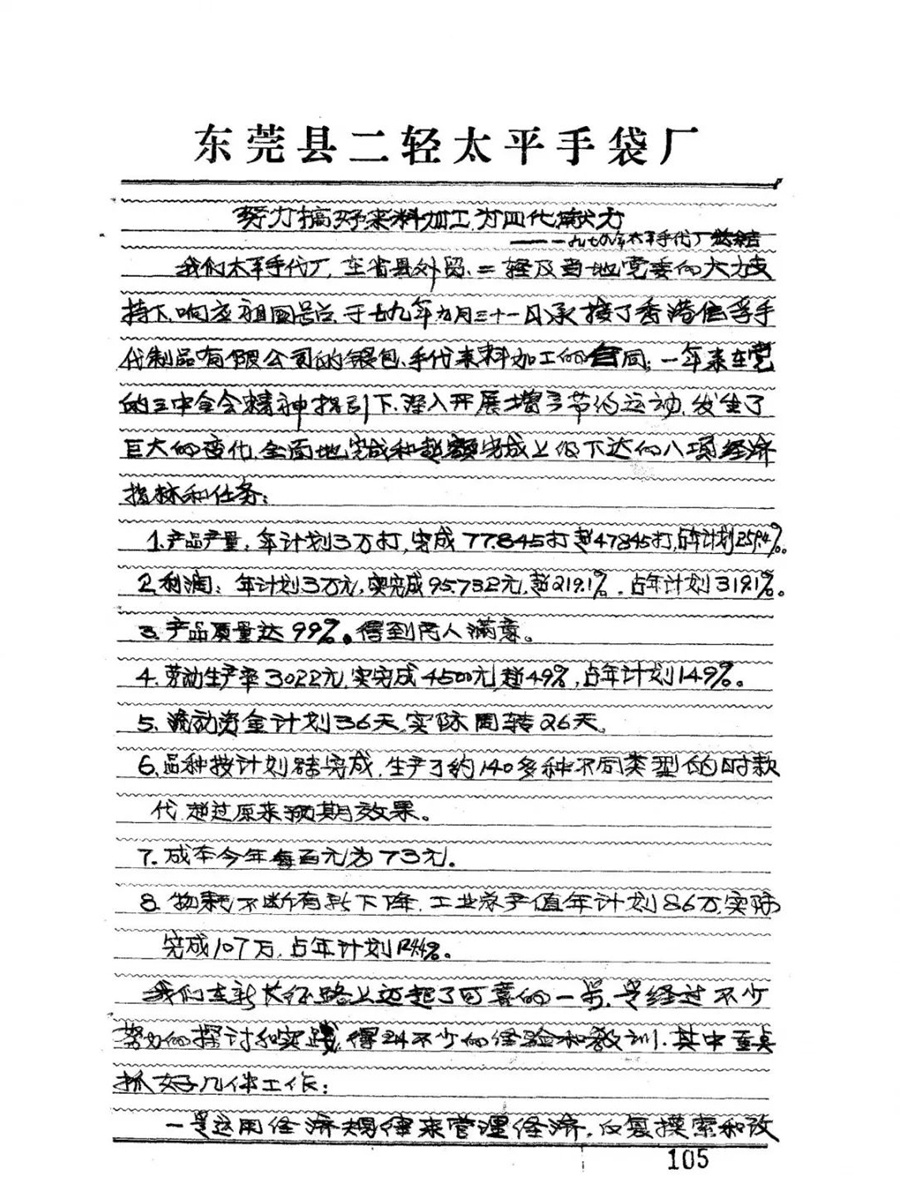 东莞县二轻太平手袋厂
努力搞好来料加工,为四化献力
———一九七九年太平手代厂总结
我们太平手代厂,在省县外贸、二轻及当地党委的大力支
持下,响应祖国号召,于七九年九月三十一日承接了香港信孚手
代制品有限公司的银包、手代来料加工的合同;一年来在党
的三中全会精神指引下,深入开展增产节约运动,发生了
巨大的变化,全面地完成和超额完成上级下达的八项经济
指标和任务:
1.产品产量,年计划3万打,完成77.845打超47845打,占年计划259.4%。
2.利润:年计划3万元,实完成95.732元,超219.1%,占年计划319.1%。
3.产品质量达99%。得到两人满意。
4.劳动生产率3022元,实完成4500元,超49%,占年计划149%。
5.流动资金计划36天,实际周转26天。
6.品种按计划完成,生产了约140多种不同类型的时款
代,超过原来预期效果。
7.成本今年每百元为73元。
8.物耗不断有所下降,工业总产值年计划86万,实际
完成107万,占年计划124.4%。
我们在新长征路上迈起了可喜的一步,是经过不少
努力的探讨和实践,得到不少的经验和教训,其中重点
抓好几件工作:
一是运用经济规律来管理经济,反复摸索和改
105